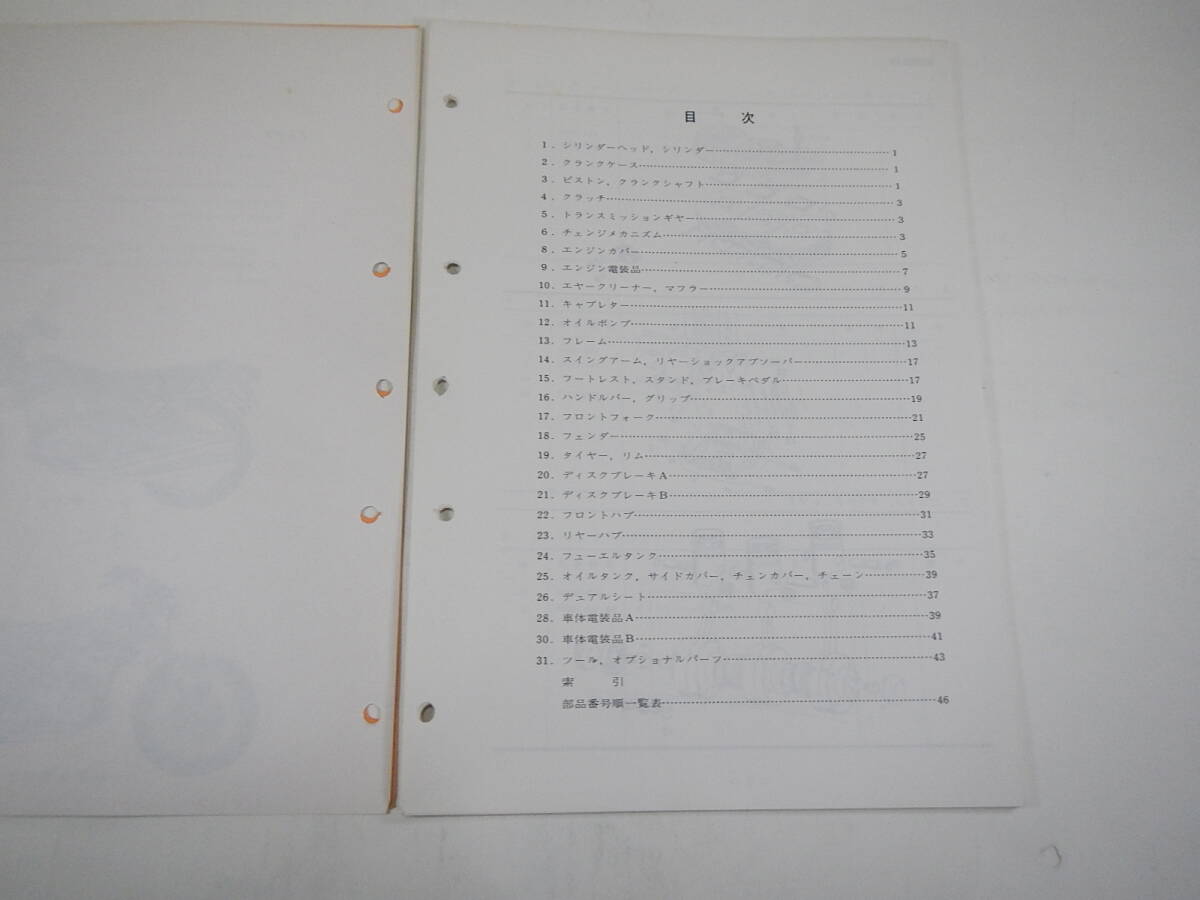 目　次
1. シリンダーヘッド，シリンダー…………1
2. クランクケース…………1
3. ピストン，クランクシャフト…………1
4. クラッチ…………3
5. トランスミッションギヤー…………3
6. チェンジメカニズム…………3
8. エンジンカバー…………5
9. エンジン電装品…………7
10. エヤークリーナー，マフラー…………9
11. キャブレター…………11
12. オイルポンプ…………11
13. フレーム…………13
14. スイングアーム，リヤーショックアブソーバー…………17
15. フートレスト，スタンド，ブレーキペダル…………17
16. ハンドルバー，グリップ…………19
17. フロントフォーク…………21
18. フェンダー…………25
19. タイヤー，リム…………27
20. ディスクブレーキA…………27
21. ディスクブレーキB…………29
22. フロントハブ…………31
23. リヤーハブ…………33
24. フューエルタンク…………35
25. オイルタンク，サイドカバー，チェンカバー，チェーン…………39
26. デュアルシート…………37
28. 車体電装品A…………39
30. 車体電装品B…………41
31. ツール，オプショナルパーツ…………43
索　引
部品番号順一覧表…………46